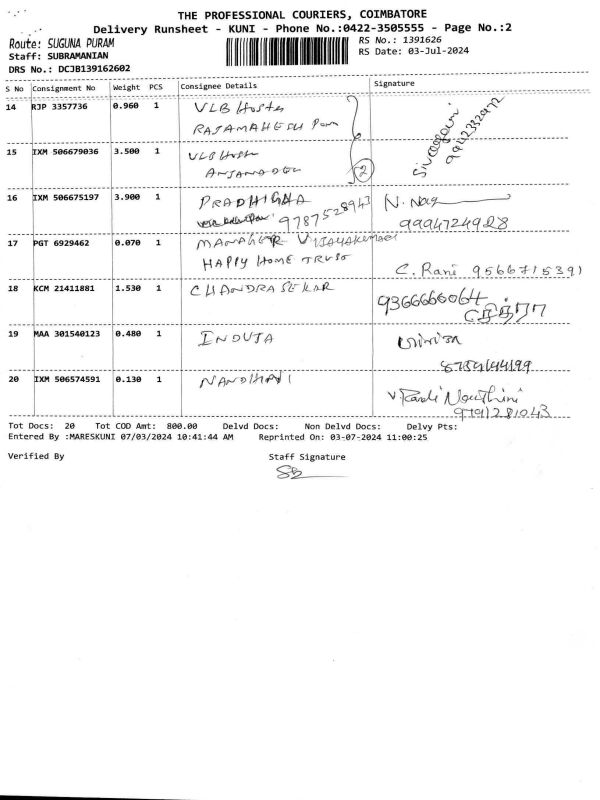 THE PROFESSIONAL COURIERS, COIMBATORE
Delivery Runsheet - KUNI - Phone No.:0422-3505555 - Page No.:2
Route: SUGUNA PURAM
RS No.: 1391626
Staff: SUBRAMANIAN
RS Date: 03-Jul-2024
DRS No.: DCJB139162602
S No Consignment No Weight PCS Consignee Details Signature
14 RJP 3357736 0.960 1 VLB Hostes
RAJAMAHESH
15 IXM 506679036 3.500 1 VLB
ANJANADEV
2
16 IXM 506675197 3.900 1 PRADHIGNA N. Nag
9787528943 9994724928
17 PGT 6929462 0.070 1 MANAGER VIJAYAKUMAR
HAPPY HOME TRUST C. Rani 9566715391
18 KCM 21411881 1.530 1 CHANDRASEKAR 9366666064
19 MAA 301540123 0.480 1 INDUJA
20 IXM 506574591 0.130 1 NANDHINI
9791281043
Tot Docs: 20 Tot COD Amt: 800.00 Delvd Docs: Non Delvd Docs: Delvy Pts:
Entered By :MARESKUNI 07/03/2024 10:41:44 AM Reprinted On: 03-07-2024 11:00:25
Verified By Staff Signature